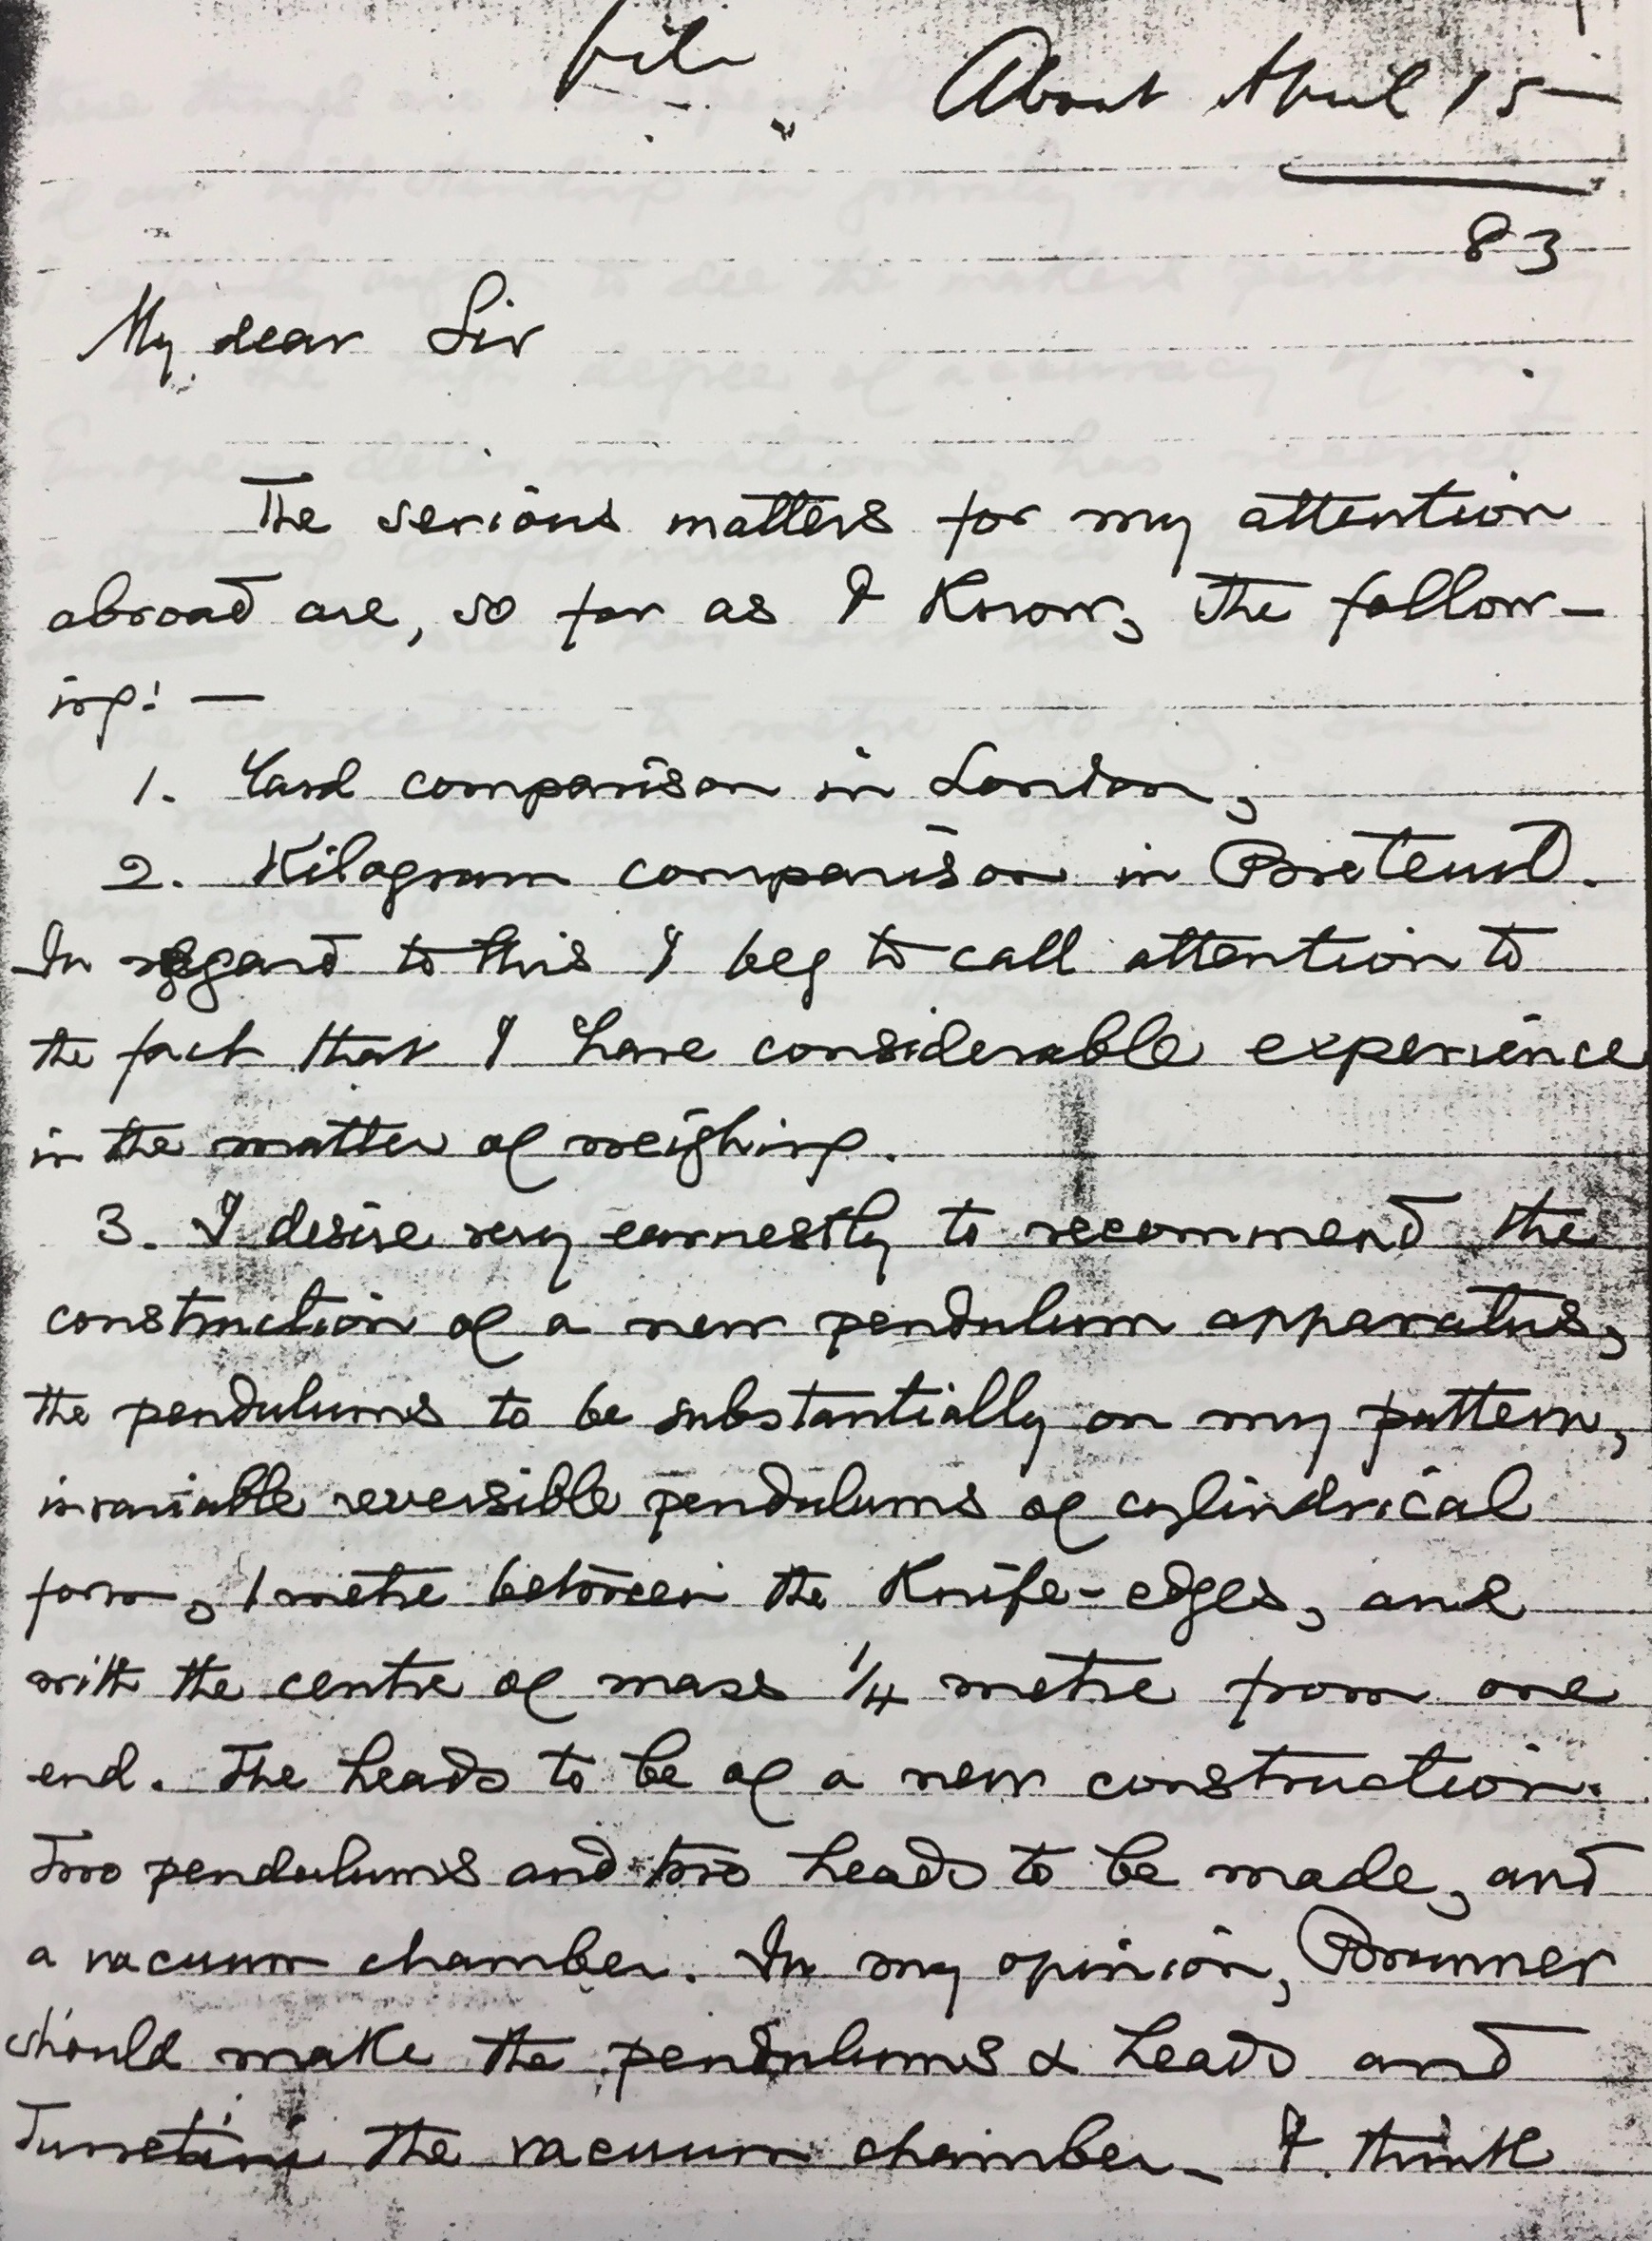 file
About April 15
83
My dear Sir
The serious matters for my attention
abroad are, so far as I know, the follow-
ing: —
1. Yard comparison in London;
2. Kilogram comparison in Breteuil.
In regard to this I beg to call attention to
the fact that I have considerable experience
in the matter of weighing.
3. I desire very earnestly to recommend the
construction of a new pendulum apparatus,
the pendulums to be substantially on my pattern,
invariable reversible pendulums of cylindrical
form, 1 metre between the Knife-edges, and
with the centre of mass 1/4 metre from one
end. The heads to be of a new construction.
Two pendulums and two heads to be made, and
a vacuum chamber. In my opinion, Brunner
should make the pendulums & heads and
the vacuum chamber. I think